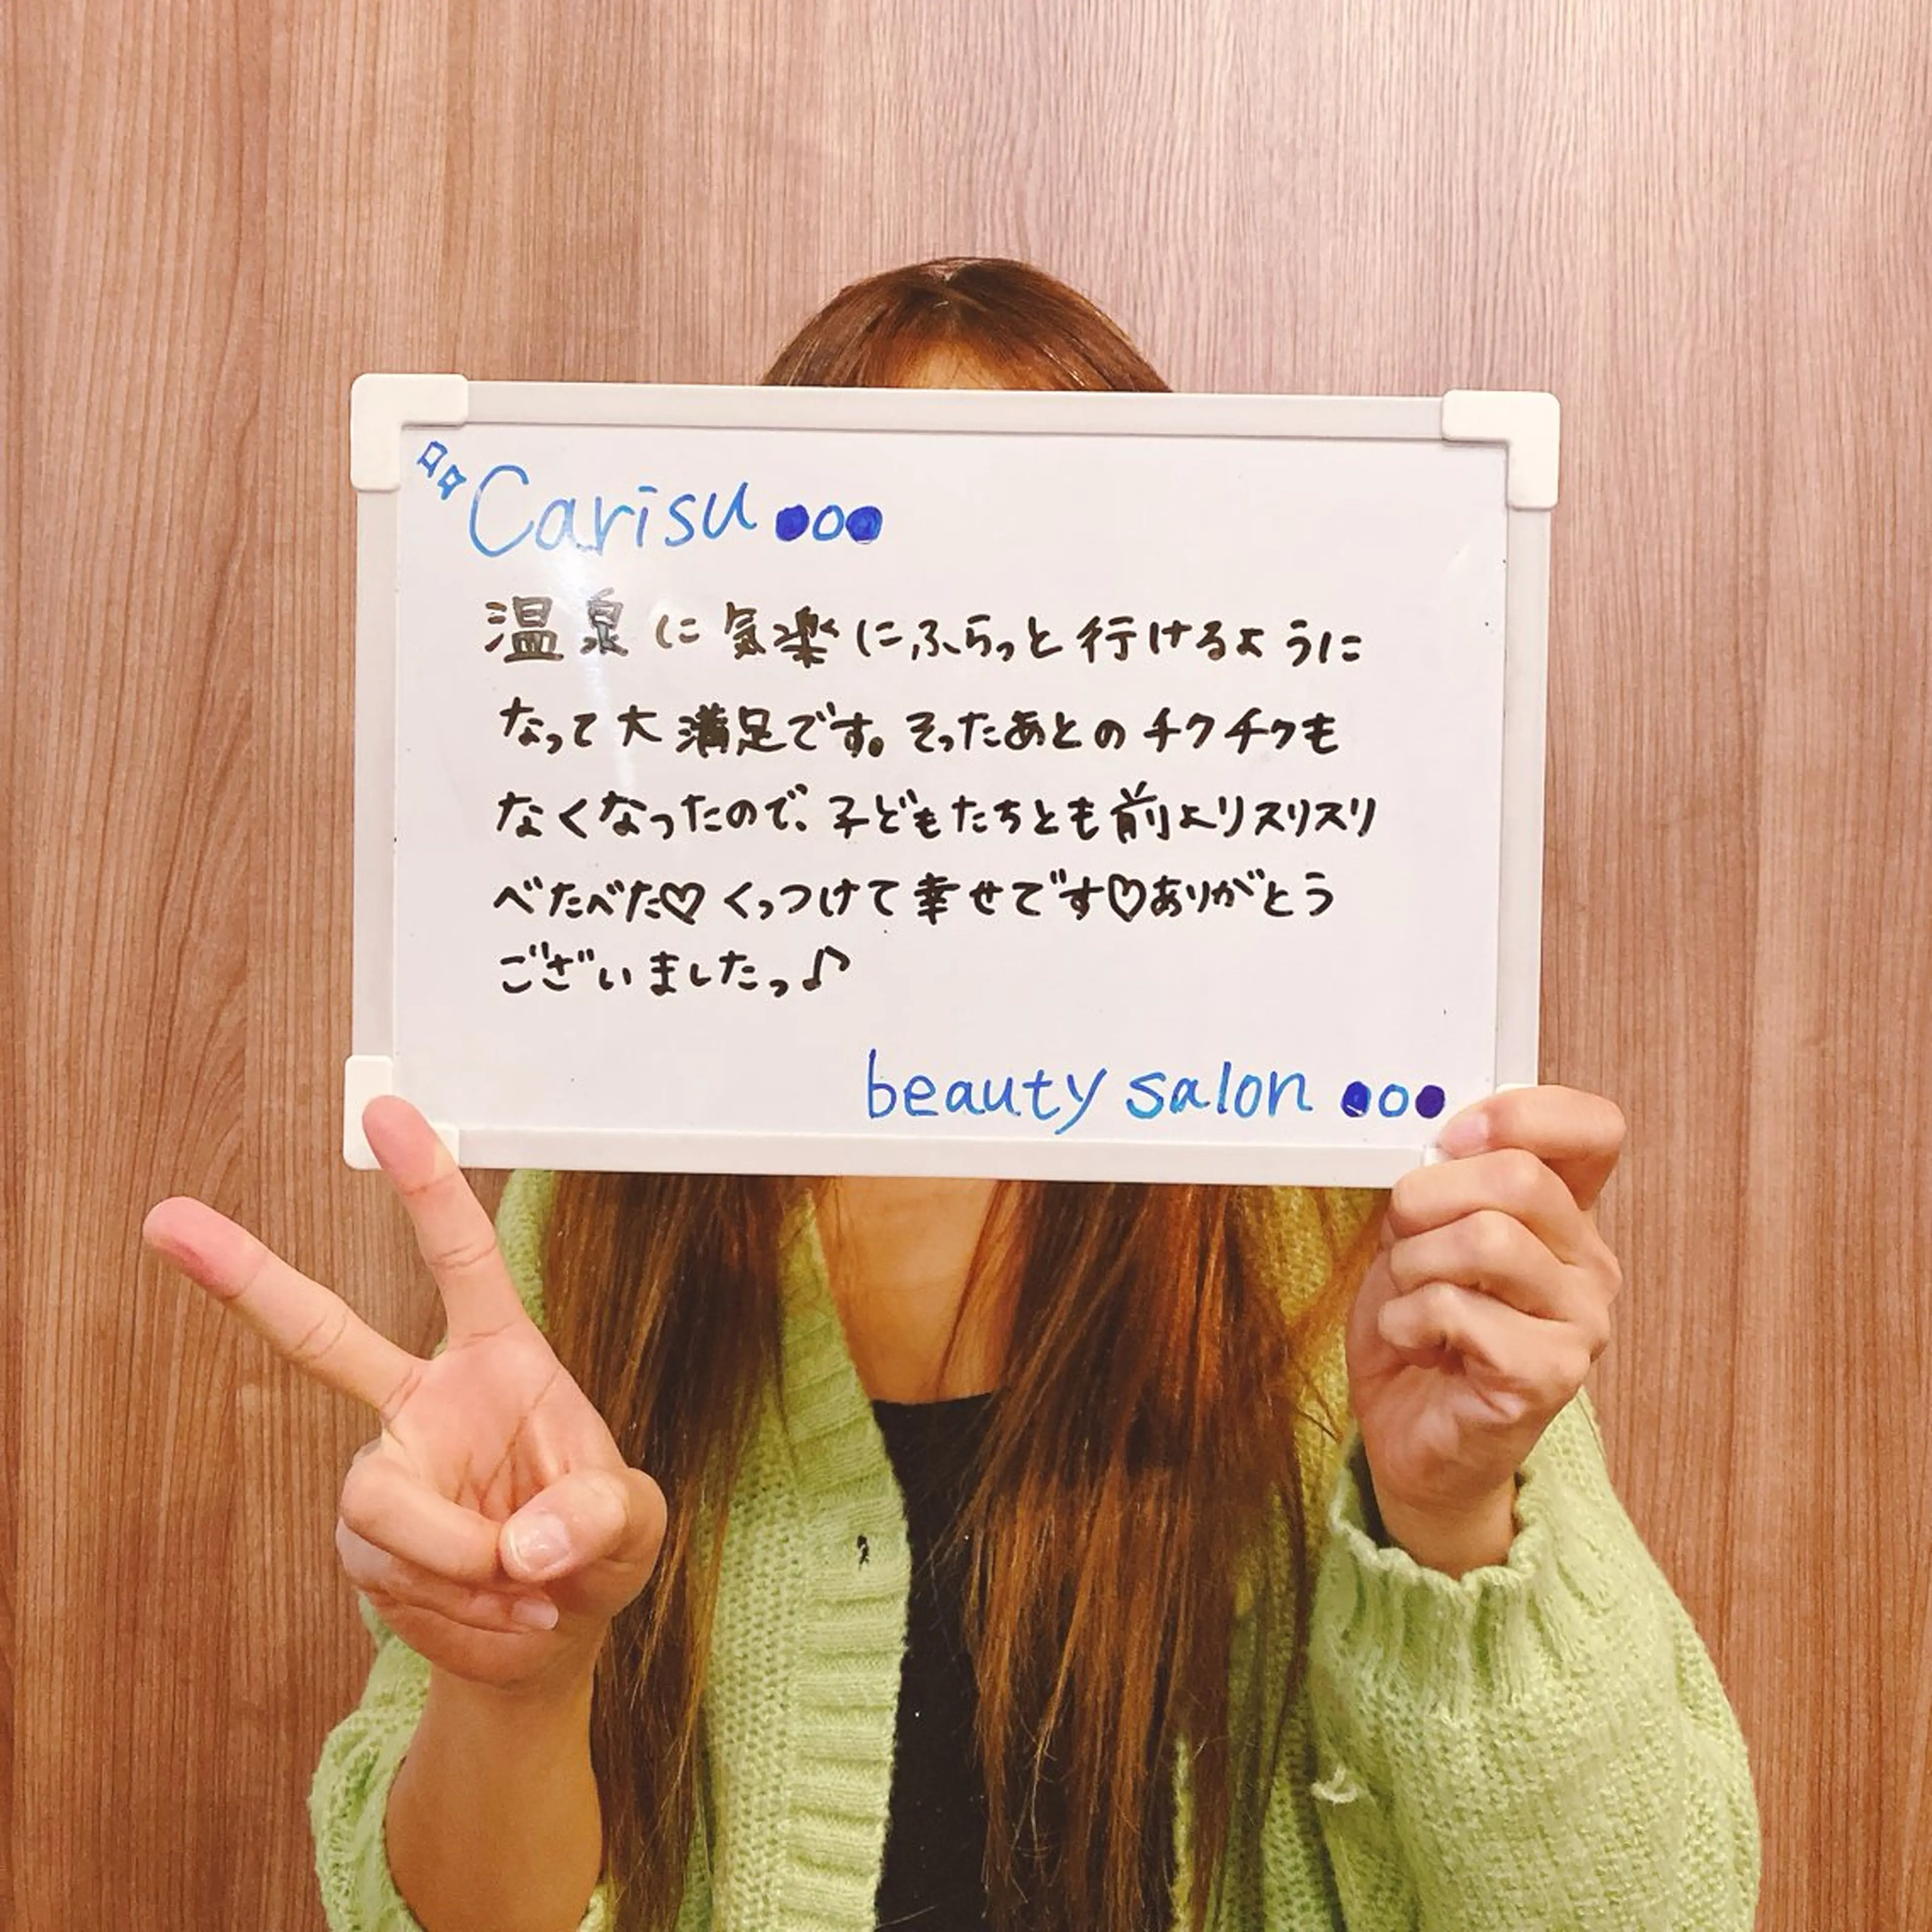 Carisu●○●
温泉に気楽にふらっと行けるように
なって大満足です。そったあとのチクチクも
なくなったので、子どもたちとも前よりスリスリ
べたべた♡くっつけて幸せです♡ありがとう
ございましたっ♪
beauty salon ●○●